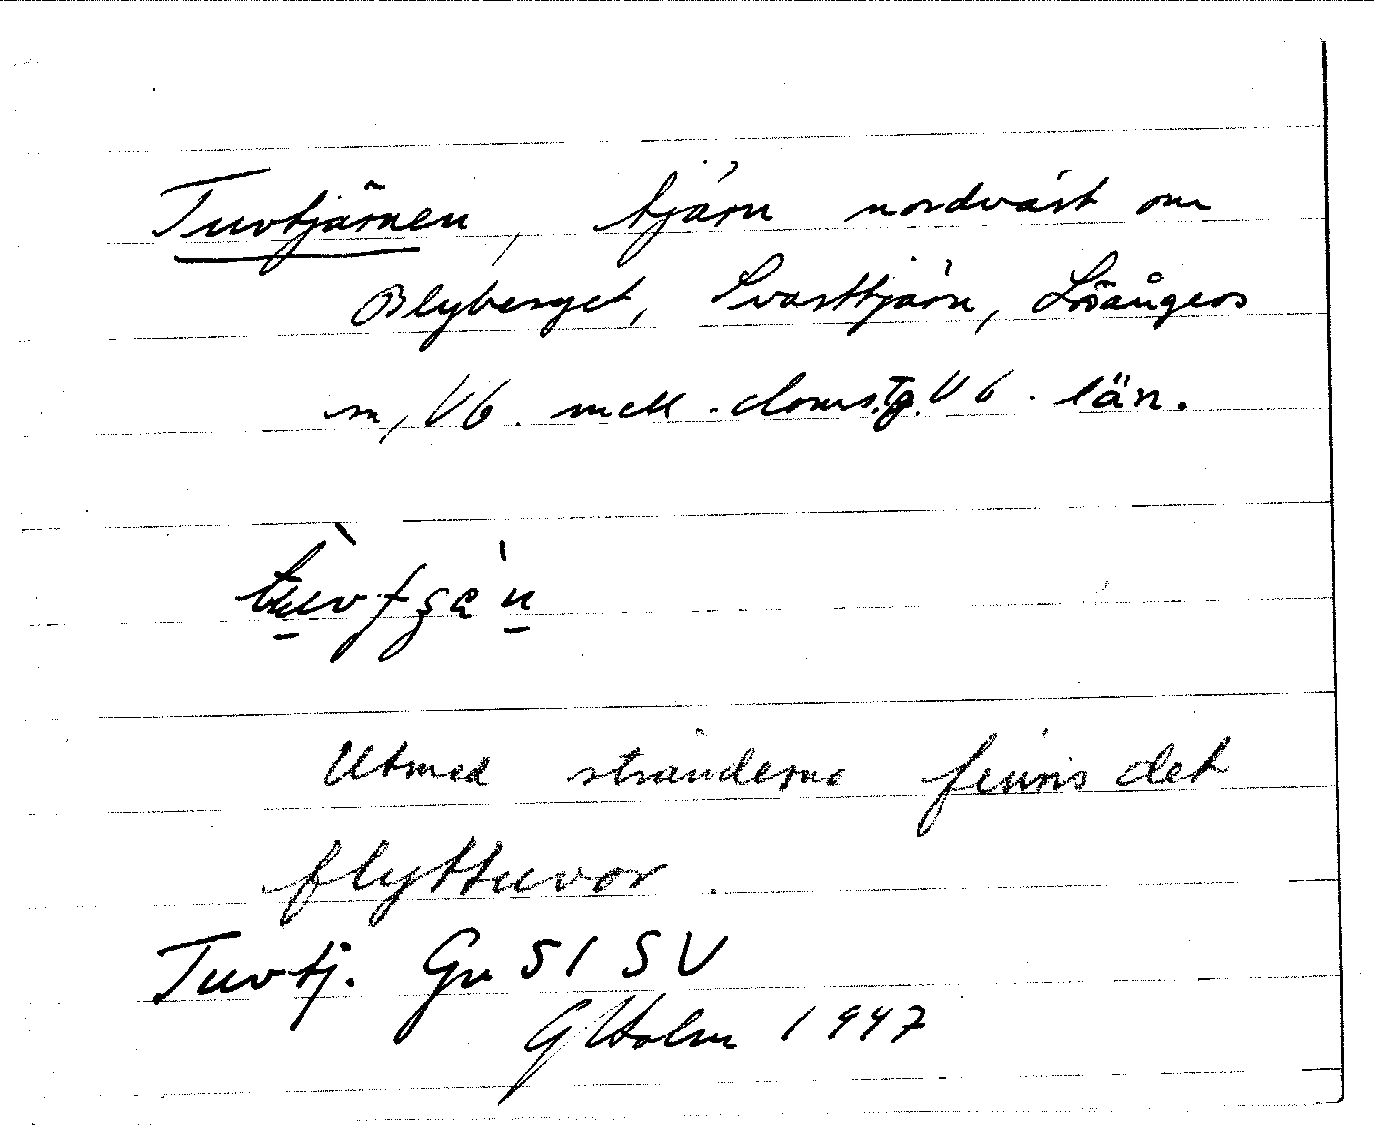 Tuvtjärnen, tjärn nordväst om
Blyberget, Svarttjärn, Lövångers
sn, Vb. mell. doms.tg. Vb. län.
Utmed stränderne finns det
flyttuvor.
Tuvtj. Gv 51 SV
G Holm 1947